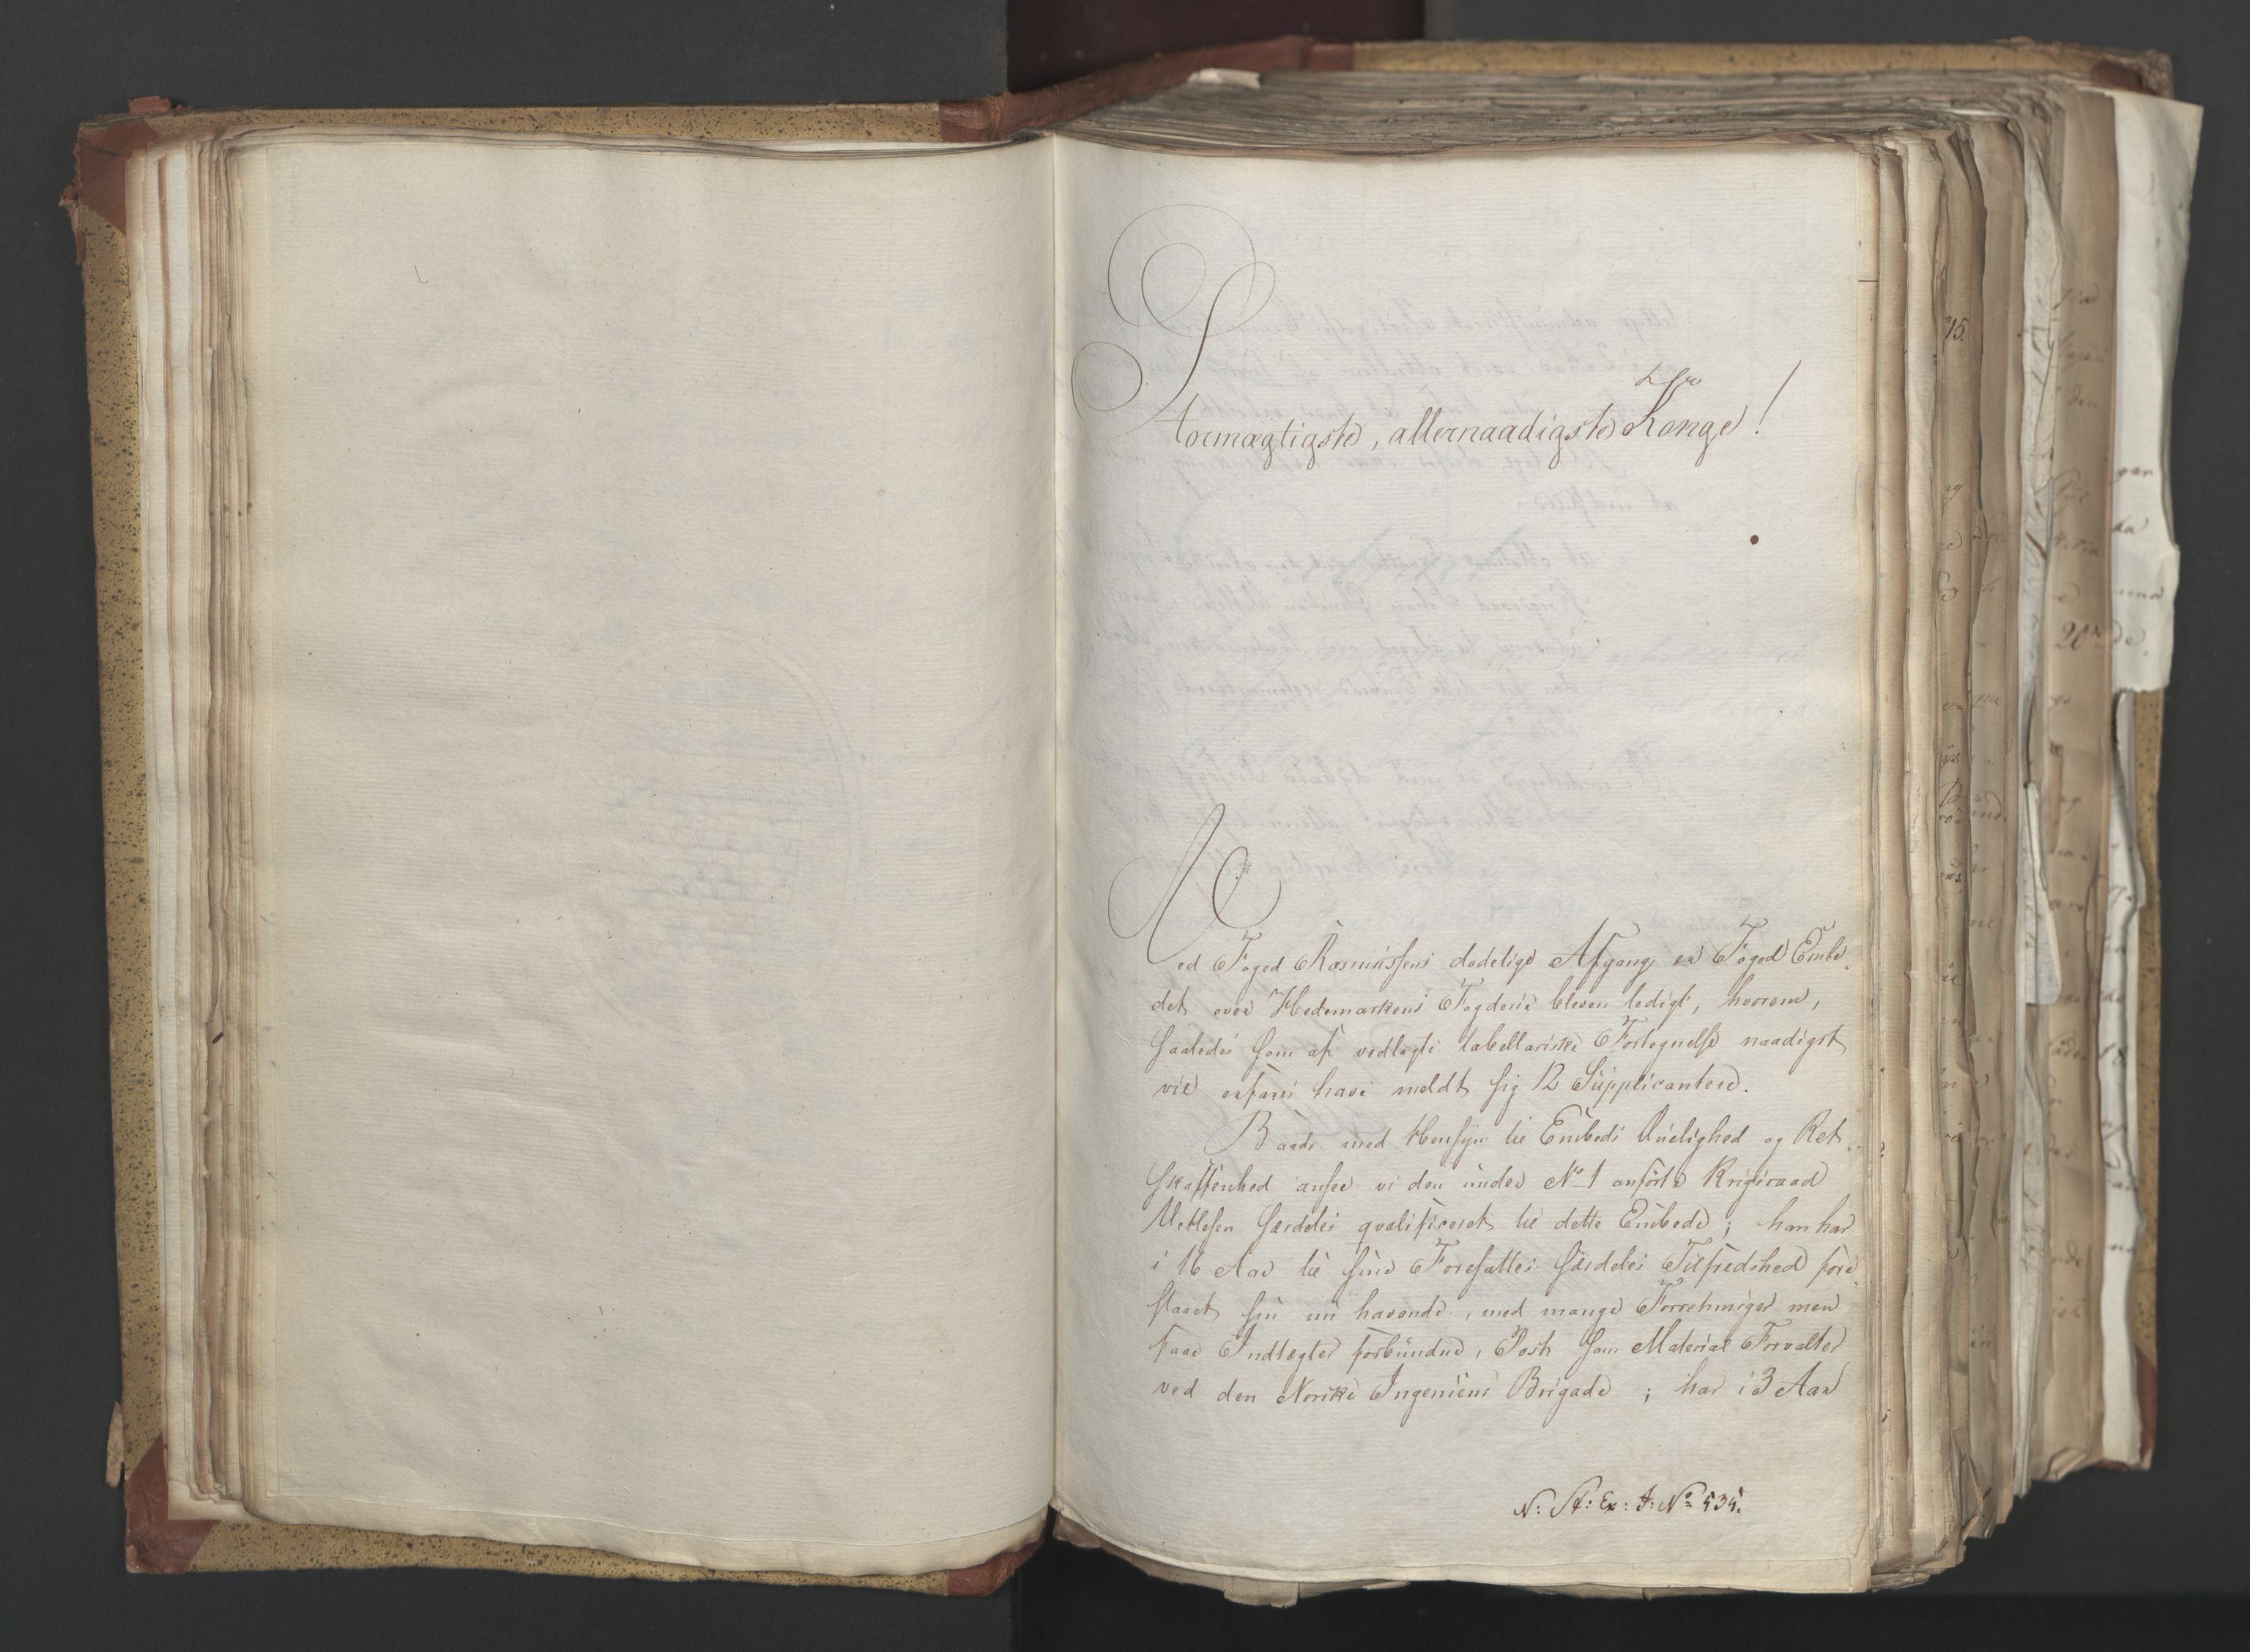 Stormægtigste, allernaadigste Konge!
Ved Foged Rasmussens dødelige Afgang er Foged Embe-
det over Hedemarkens Fogderie bleven ledigt, hvorom,
saaledes som af vedlagte tabellariske Fortegnelse naadigst
vil erfares have meldt sig 12 Supplicantere.
Baade med Hensyn til Embeds Duelighed og Ret-
skaffenhed ansee vi den under No 1 anførte Krigsraad
særdeles qvalificeret til dette Embede; han har
i 16 Aar til sine Foresattes særdeles Tilfredshed fore-
staaet sin nu havende, med mange Forretninger men
faae Indtægter forbundne, Post som Material Forvalter
ved den Norske Ingenieur Brigade; har i 3 Aar
N: St: Ex: J: No 535.